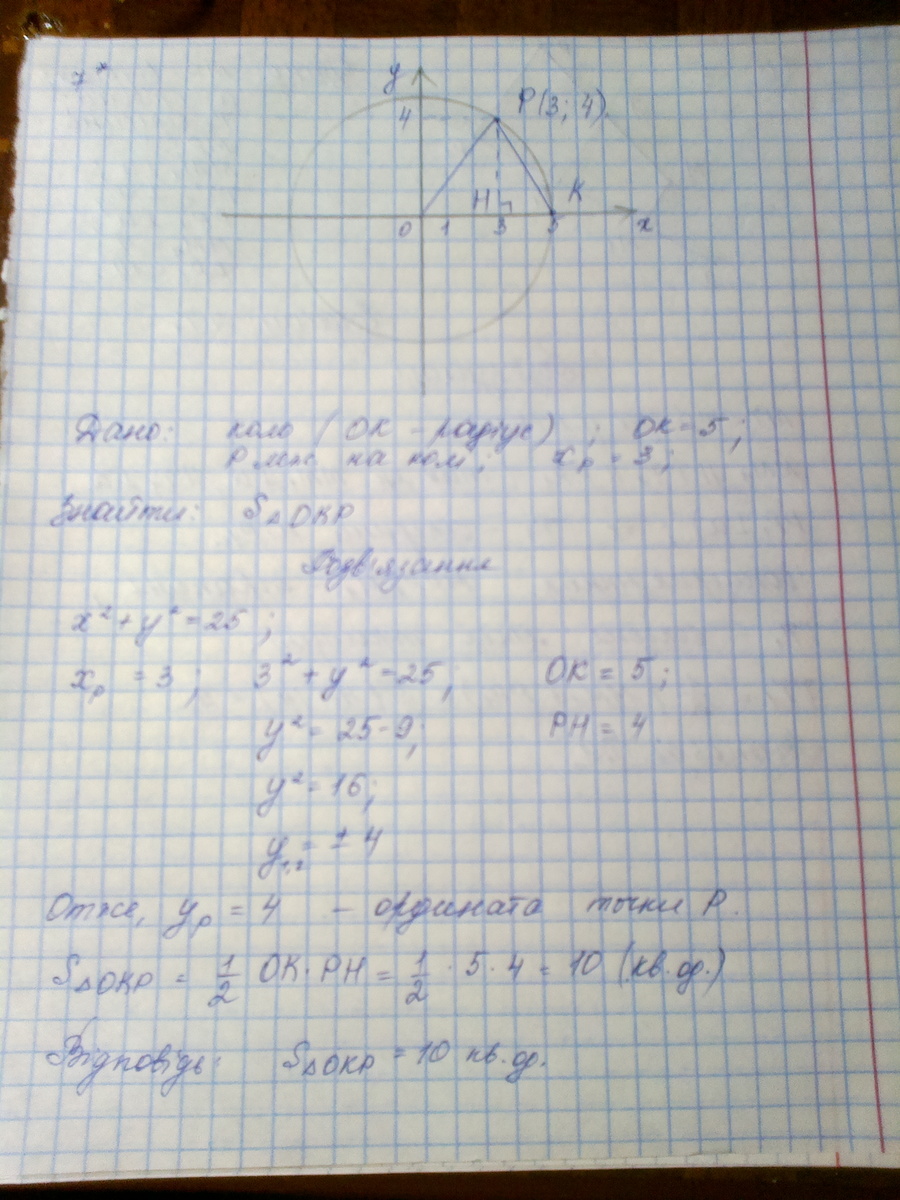 7*
y
4
P(3; 4).
H
K
0 1 3 5 x
Дано: коло (OK - радіус) ; OK = 5;
P леж. на колі; x_p = 3;
Знайти: S△OKP
Розв'язання
x² + y² = 25 ;
x_p = 3 ; 3² + y² = 25 ; OK = 5 ;
y² = 25-9; PH = 4
y² = 16;
y₁,₂ = ± 4
Отже, y_p = 4 - ордината точки P.
S△OKP = 1/2 OK · PH = 1/2 · 5 · 4 = 10 (кв. од.)
Відповідь: S△OKP = 10 кв. од.